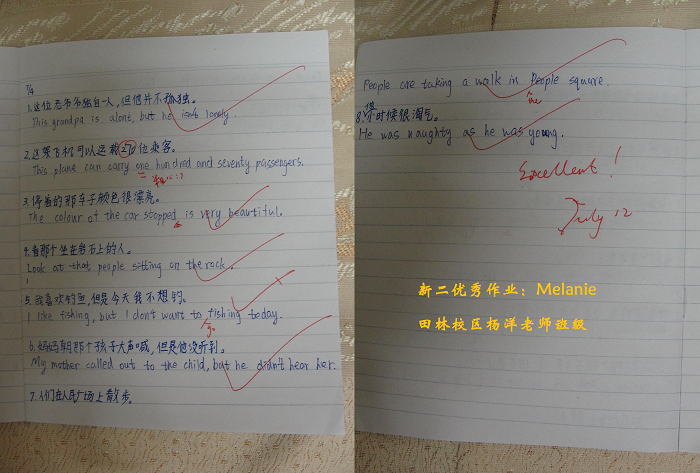 7/9
1.这位老爷爷独自一人,但他并不孤独。
This grandpa is alont, but he isn't lonely.
2.这架飞机可以运载270位乘客。
This plane can carry one hundred and seventy passengers.
3.停着的那车子颜色很漂亮。
The colour of the car stopped is very beautiful.
4.看那个坐在岩石上的人。
Look at that people sitting on the rock.
5.我喜欢钓鱼,但是今天我不想钓。
I like fishing, but I don't want to fishing today.
go
6.妈妈朝那个孩子大声喊,但是他没听到。
My mother called out to the child, but he didn't hear her.
7.人们在人民广场上散步。
People are taking a walk in People square.
the
8.他小时候很淘气。
He was naughty as he was young.
Excellent!
July 12
新二优秀作业:Melanie
田林校区杨洋老师班级